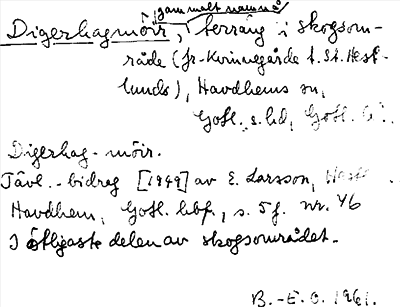 gammalt namn på
Digerhagmöir, terräng i skogsom-
råde (fr. Kvinnegårde t. St. Hest-
lunds), Havdhems sn,
Gotl. s. hd, Gotl. l.
Digerhag-möir.
Tävl.-bidrag [1949] av E. Larsson,
Havdhem, Gotl. hbf., s. 5f. nr. 46
I östligaste delen av skogsområdet.
B.-E. O. 1961.